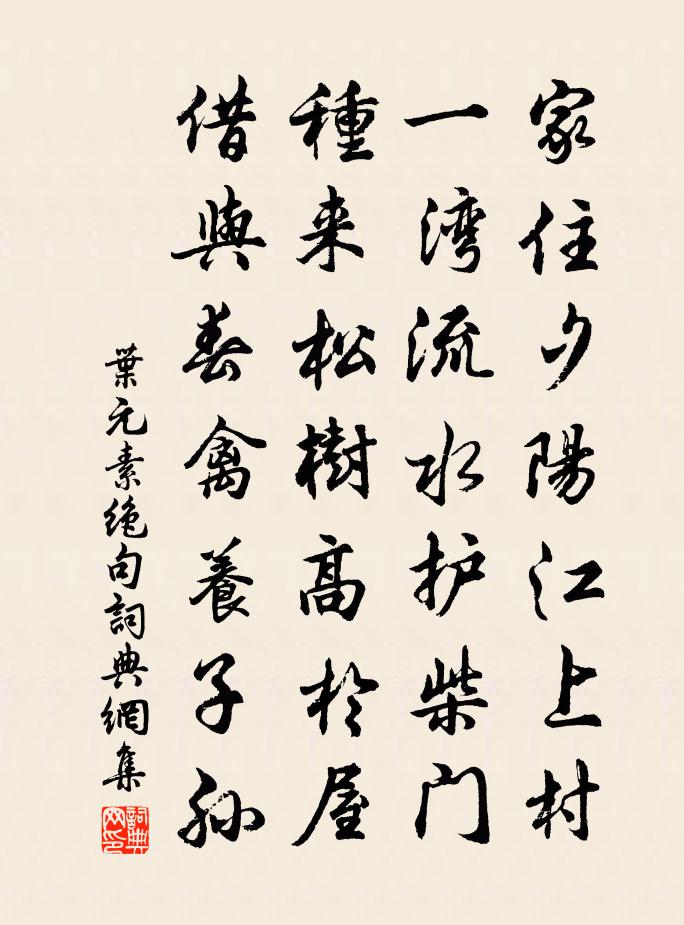 家住夕陽江上村
一湾流水护柴门
種来松樹高於屋
借與春禽養子孫
葉元素絶句詞典網集
詞典網印